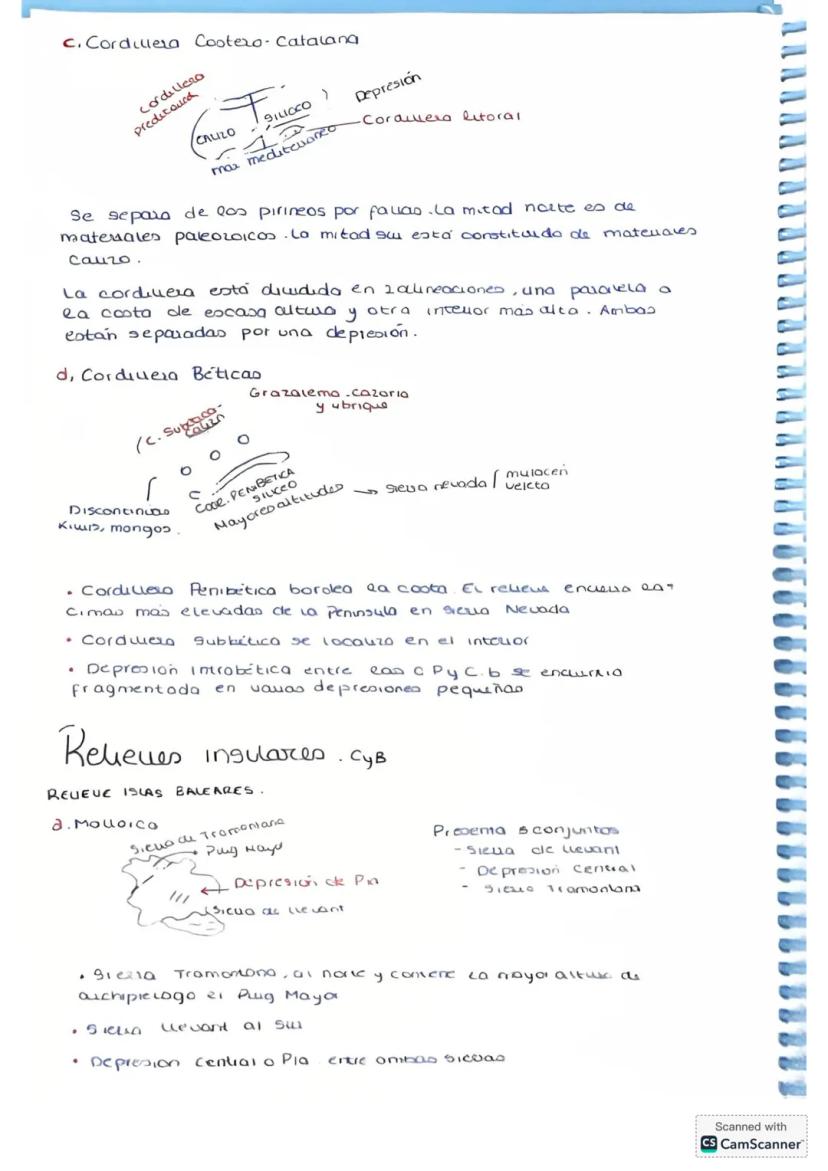 c. Cordillera Costero-Catalana
cordillera
prelitoral
Depresión
silíceo
calizo
Cordillera litoral
mar mediterraneo
Se separa de los pirineos por fallas. La mitad norte es de
materiales paleozoicos. La mitad sur está constituida de materiales
calizo.
La cordillera está dividida en 2 alineaciones, una paralela a
la costa de escasa altura y otra interior mas alta. Ambas
están separadas por una depresión.
d, Cordillera Béticas
Grazalema. cazorla
y ubrique
C. Subbética-
caliza
Discontinuas
mongos.
C
Cord. PENIBÉTICA
SILICEO
Mayores altitudes → sierra nevada
mulacen
veleta
• Cordillera Penibética bordea la costa. El relieve encierra las
cimas más elevadas de la Península en Sierra Nevada
• Cordillera Subbética se localiza en el interior
• Depresión intrabética entre las C P y C. b se encuentra
fragmentada en varias depresiones pequeñas
Relieves insulares. CyB
RELIEVE ISLAS BALEARES.
a. Mallorca
Sierra de Tramontana
Puig Mayo
← Depresión de Pla
Sierra de llevant
Presenta 3 conjuntos
- Sierra de llevant
- Depresion Central
- Sierra Tramontana
• Sierra Tramontana, al norte y contiene la mayor altura de
archipielago el Puig Mayor
• Sierra llevant al sur
• Depresion central o Pla entre ambas sierras
Scanned with
CS CamScanner